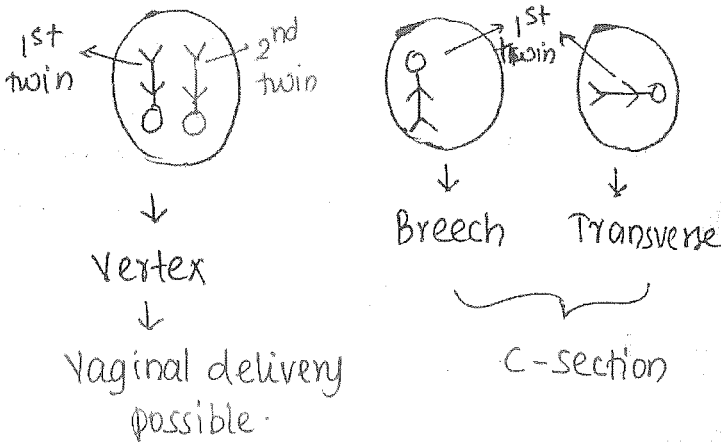 1st
twin
2nd
twin
1st
twin
Vertex
Vaginal delivery
possible.
Breech
Transverse
C-section